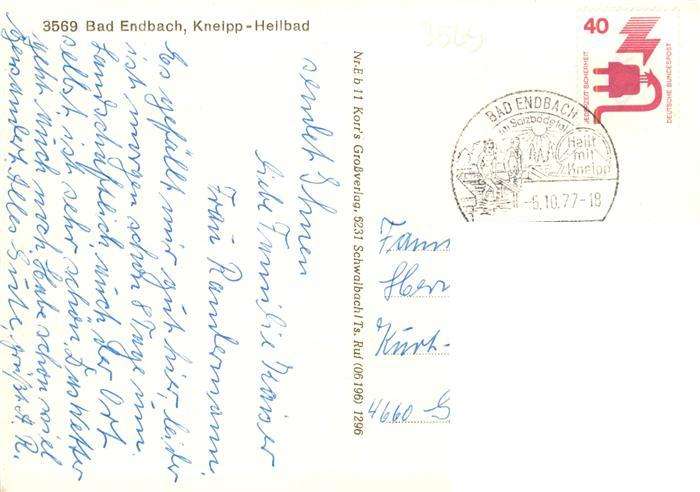 3569 Bad Endbach, Kneipp-Heilbad
sendet Ihnen
liebe Familie Kaiser
Frau Randermann.
Es gefällt mir gut hier, leider
ist morgen schon 8 Tage um.
Landschaftlich, auch der Ort
selbst ist sehr schön. Das Wetter
geht auch noch. Habe schon viel
gewandert. Alles Gute, grüßt A. R.
Nr. E b 11 Korr's Großverlag, 6231 Schwalbach/Ts. Ruf (06196) 1296
40
JEDERZEIT SICHERHEIT
DEUTSCHE BUNDESPOST
BAD ENDBACH
im Salzbödetal
Heilt
mit
Kneipp
-5.10.77-18
Fam
Herr
Kurt-
4660 G